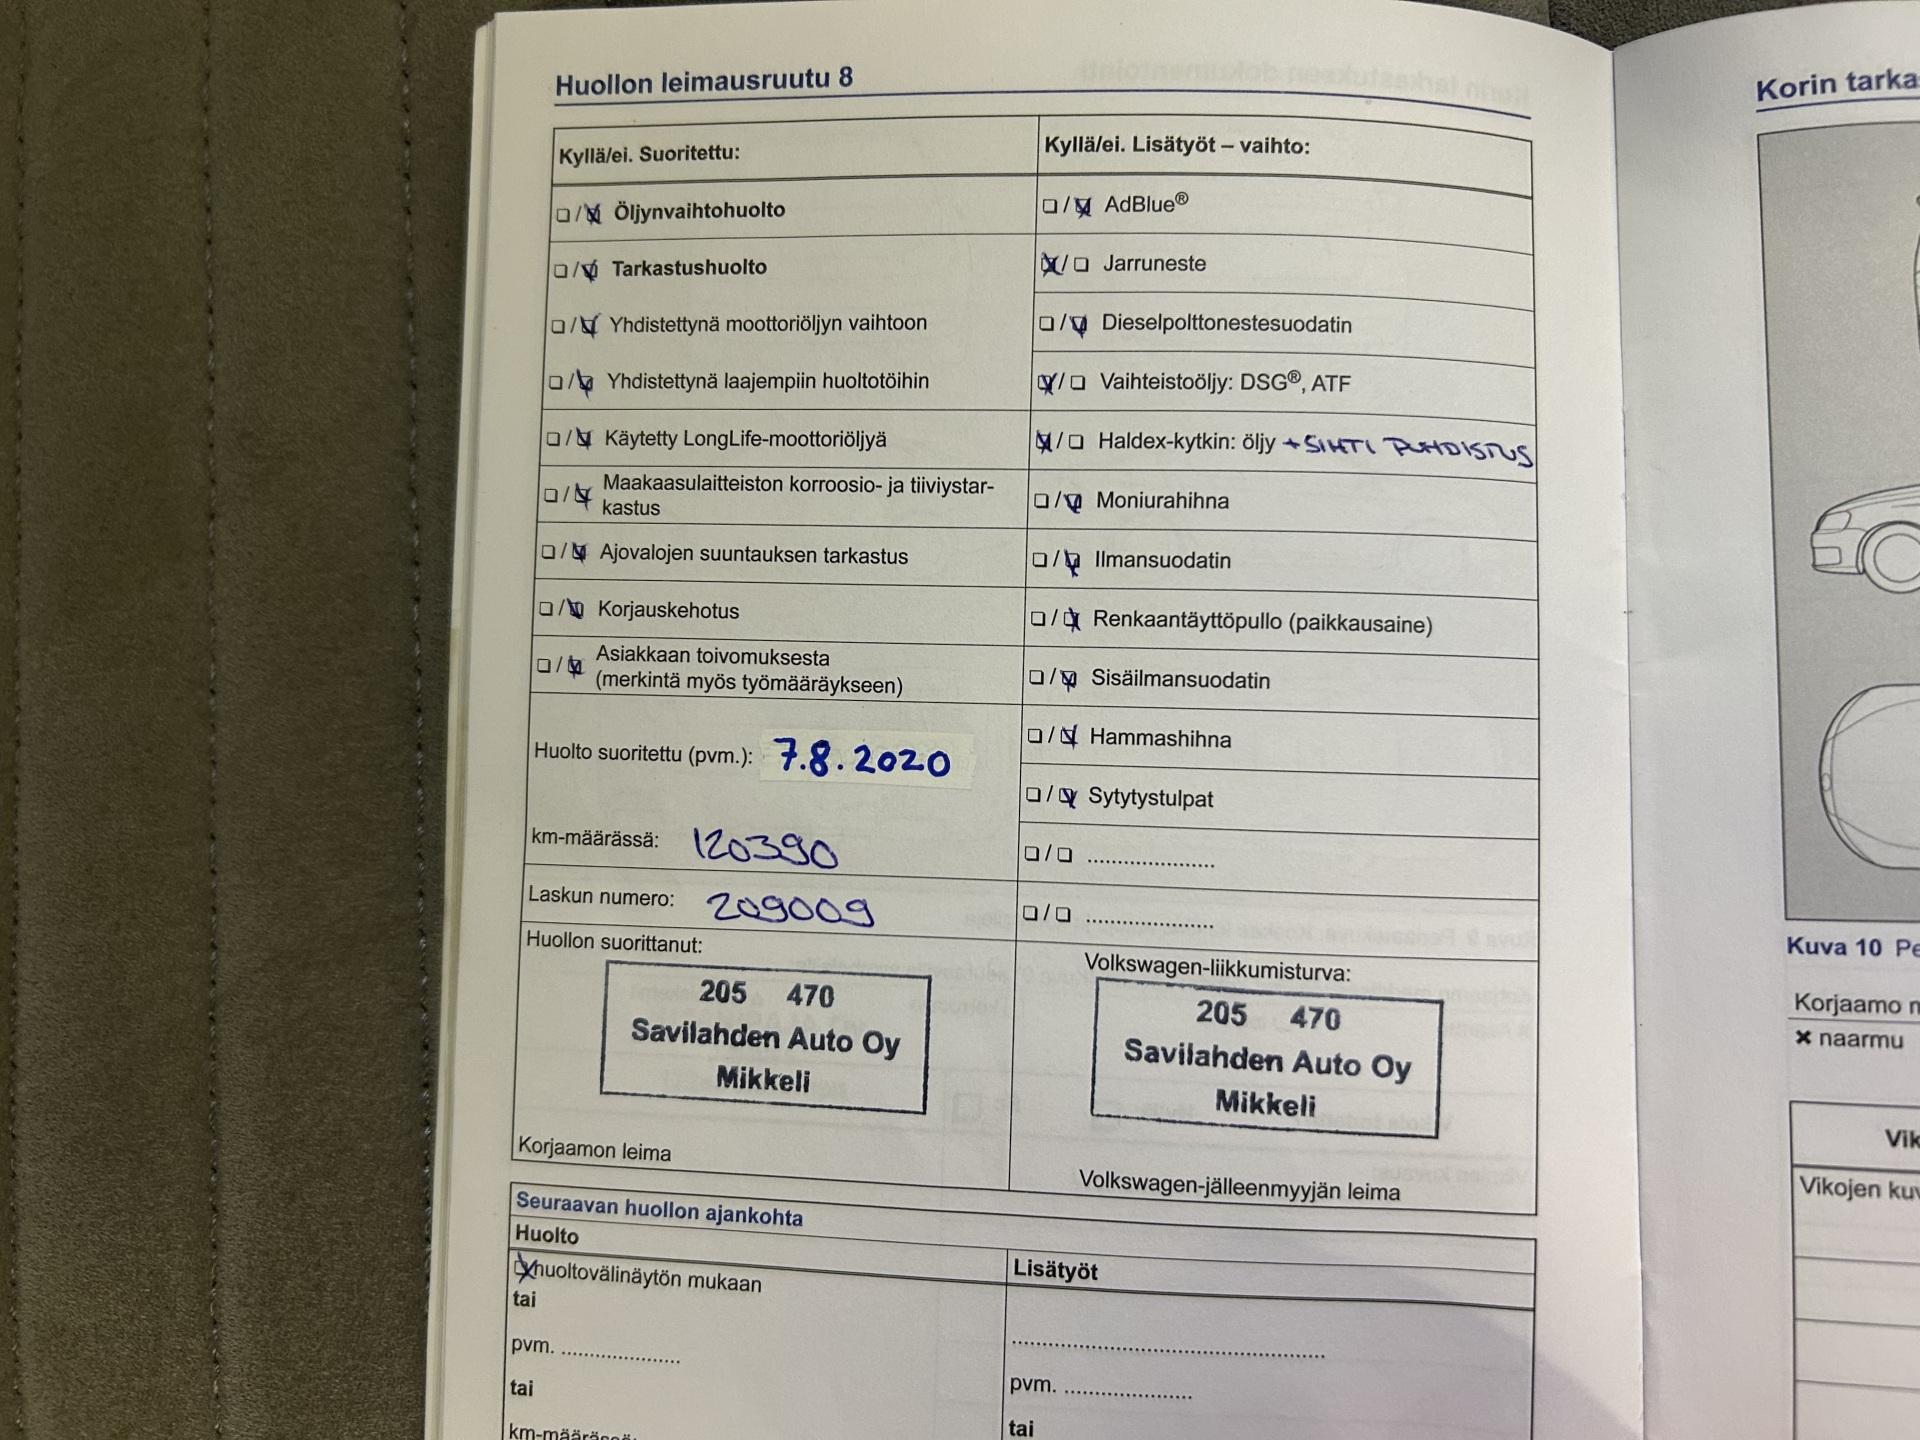 Huollon leimausruutu 8
Kyllä/ei. Suoritettu:
☐/☒ Öljynvaihtohuolto
☐/☒ Tarkastushuolto
☐/☒ Yhdistettynä moottoriöljyn vaihtoon
☐/☒ Yhdistettynä laajempiin huoltotöihin
☐/☒ Käytetty LongLife-moottoriöljyä
☐/☒ Maakaasulaitteiston korroosio- ja tiiviystar-
kastus
☐/☒ Ajovalojen suuntauksen tarkastus
☐/☒ Korjauskehotus
☐/☒ Asiakkaan toivomuksesta
(merkintä myös työmääräykseen)
Huolto suoritettu (pvm.): 7.8.2020
km-määrässä: 120390
Laskun numero: 209009
Huollon suorittanut:
205 470
Savilahden Auto Oy
Mikkeli
Korjaamon leima
Kyllä/ei. Lisätyöt – vaihto:
☐/☒ AdBlue®
☒/☐ Jarruneste
☐/☒ Dieselpolttonestesuodatin
☒/☐ Vaihteistoöljy: DSG®, ATF
☒/☐ Haldex-kytkin: öljy +SIHTI PUHDISTUS
☐/☒ Moniurahihna
☐/☒ Ilmansuodatin
☐/☒ Renkaantäyttöpullo (paikkausaine)
☐/☒ Sisäilmansuodatin
☐/☒ Hammashihna
☐/☒ Sytytystulpat
☐/☐ ......................
☐/☐ ......................
Volkswagen-liikkumisturva:
205 470
Savilahden Auto Oy
Mikkeli
Volkswagen-jälleenmyyjän leima
Seuraavan huollon ajankohta
Huolto
☒ huoltovälinäytön mukaan
tai
pvm. ....................
tai
km-määrässä:
Lisätyöt
......................................................
pvm. ......................
tai
Korin tarka
Kuva 10 Pe
Korjaamo m
✖ naarmu
Vik
Vikojen kuv